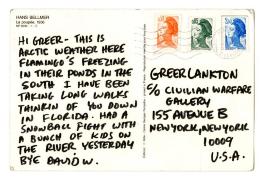 HANS BELLMER
La poupée, 1936
HI GREER - THIS IS
ARCTIC WEATHER HERE
FLAMINGO'S FREEZING
IN THEIR PONDS IN THE
SOUTH I HAVE BEEN
TAKING LONG WALKS
THINKIN OF YOU DOWN
IN FLORIDA. HAD A
SNOWBALL FIGHT WITH
A BUNCH OF KIDS ON
THE RIVER YESTERDAY
BYE DAVID W.
GREER LANKTON
C/O CIVILIAN WARFARE
GALLERY
155 AVENUE B
NEW YORK, NEW YORK
10009
U.S.A.